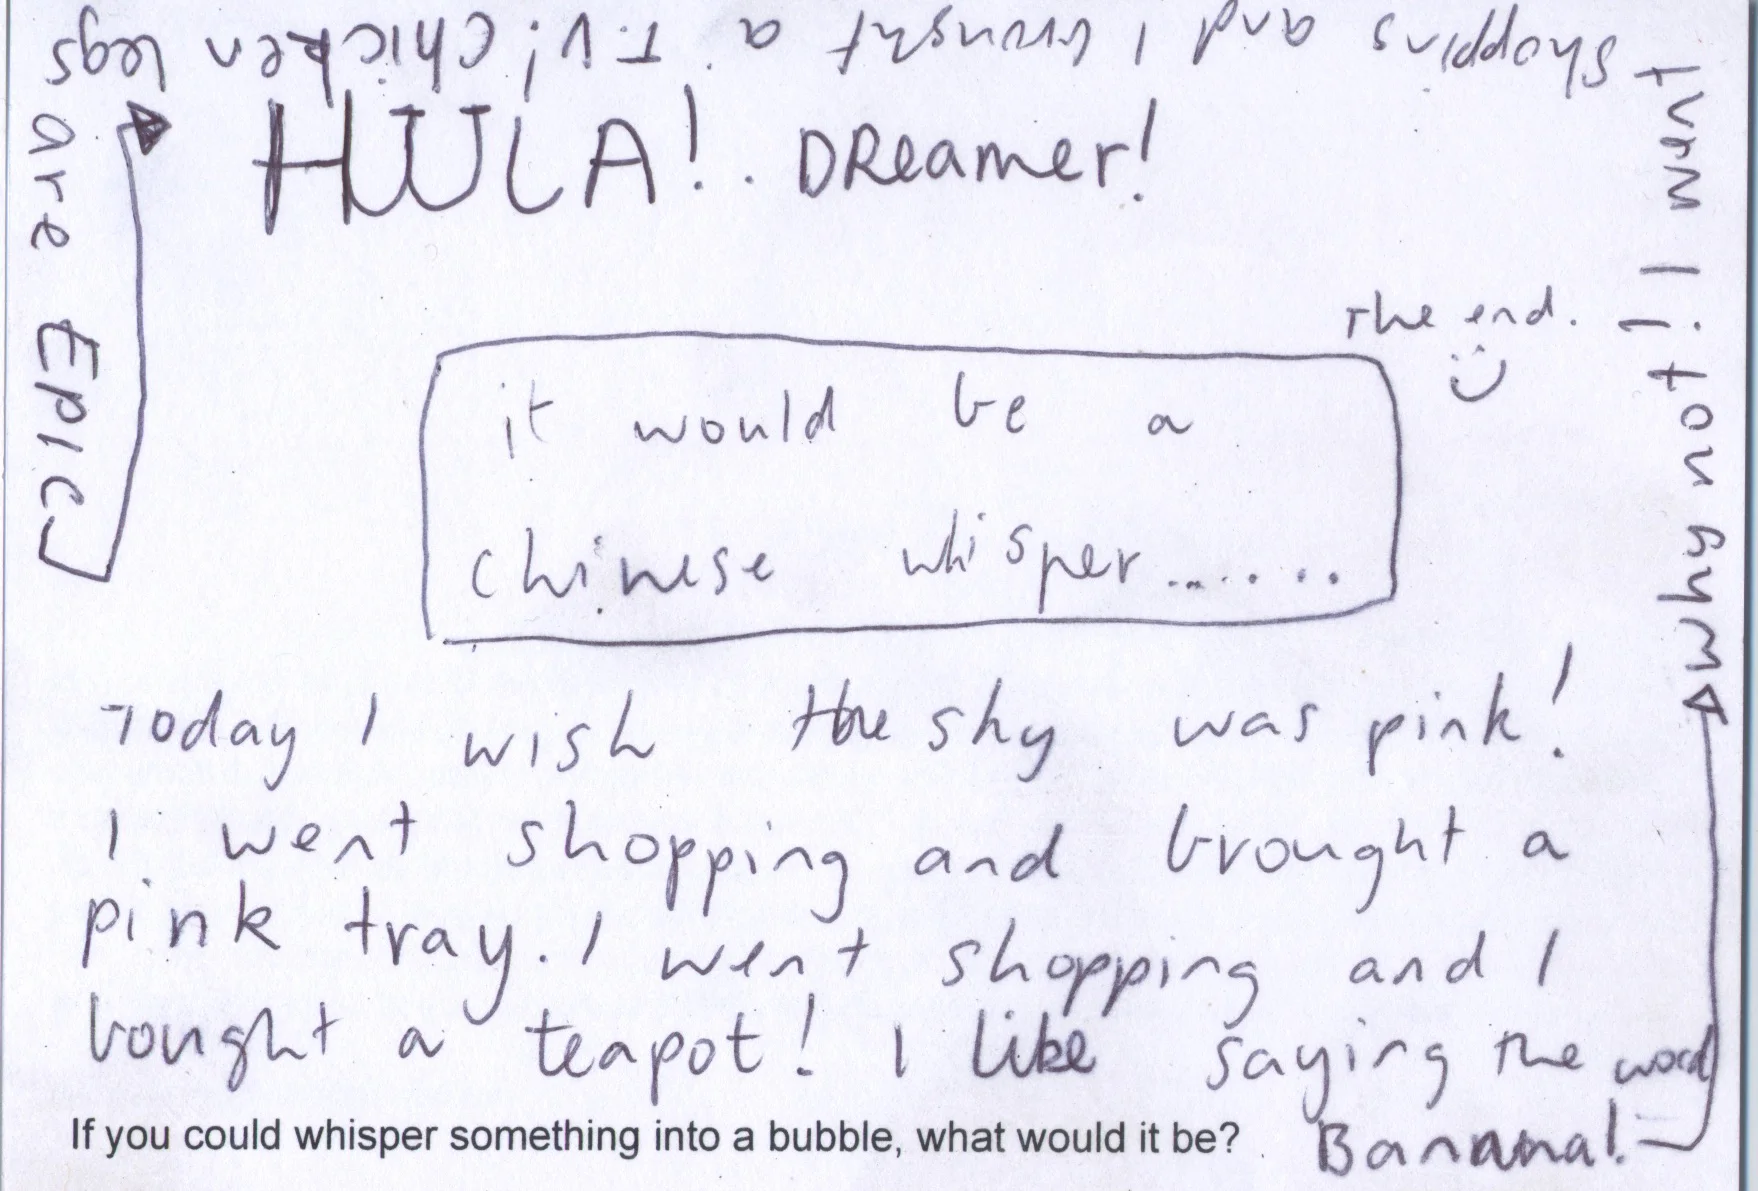 it would be a
chinese whisper......
Today I wish the sky was pink!
I went shopping and brought a
pink tray. I went shopping and I
bought a teapot! I like saying the word
Banana!
why not! I went
shopping and I bought a T.V; chicken legs
are EPIC
HULA!. DReamer!
The end.
If you could whisper something into a bubble, what would it be?